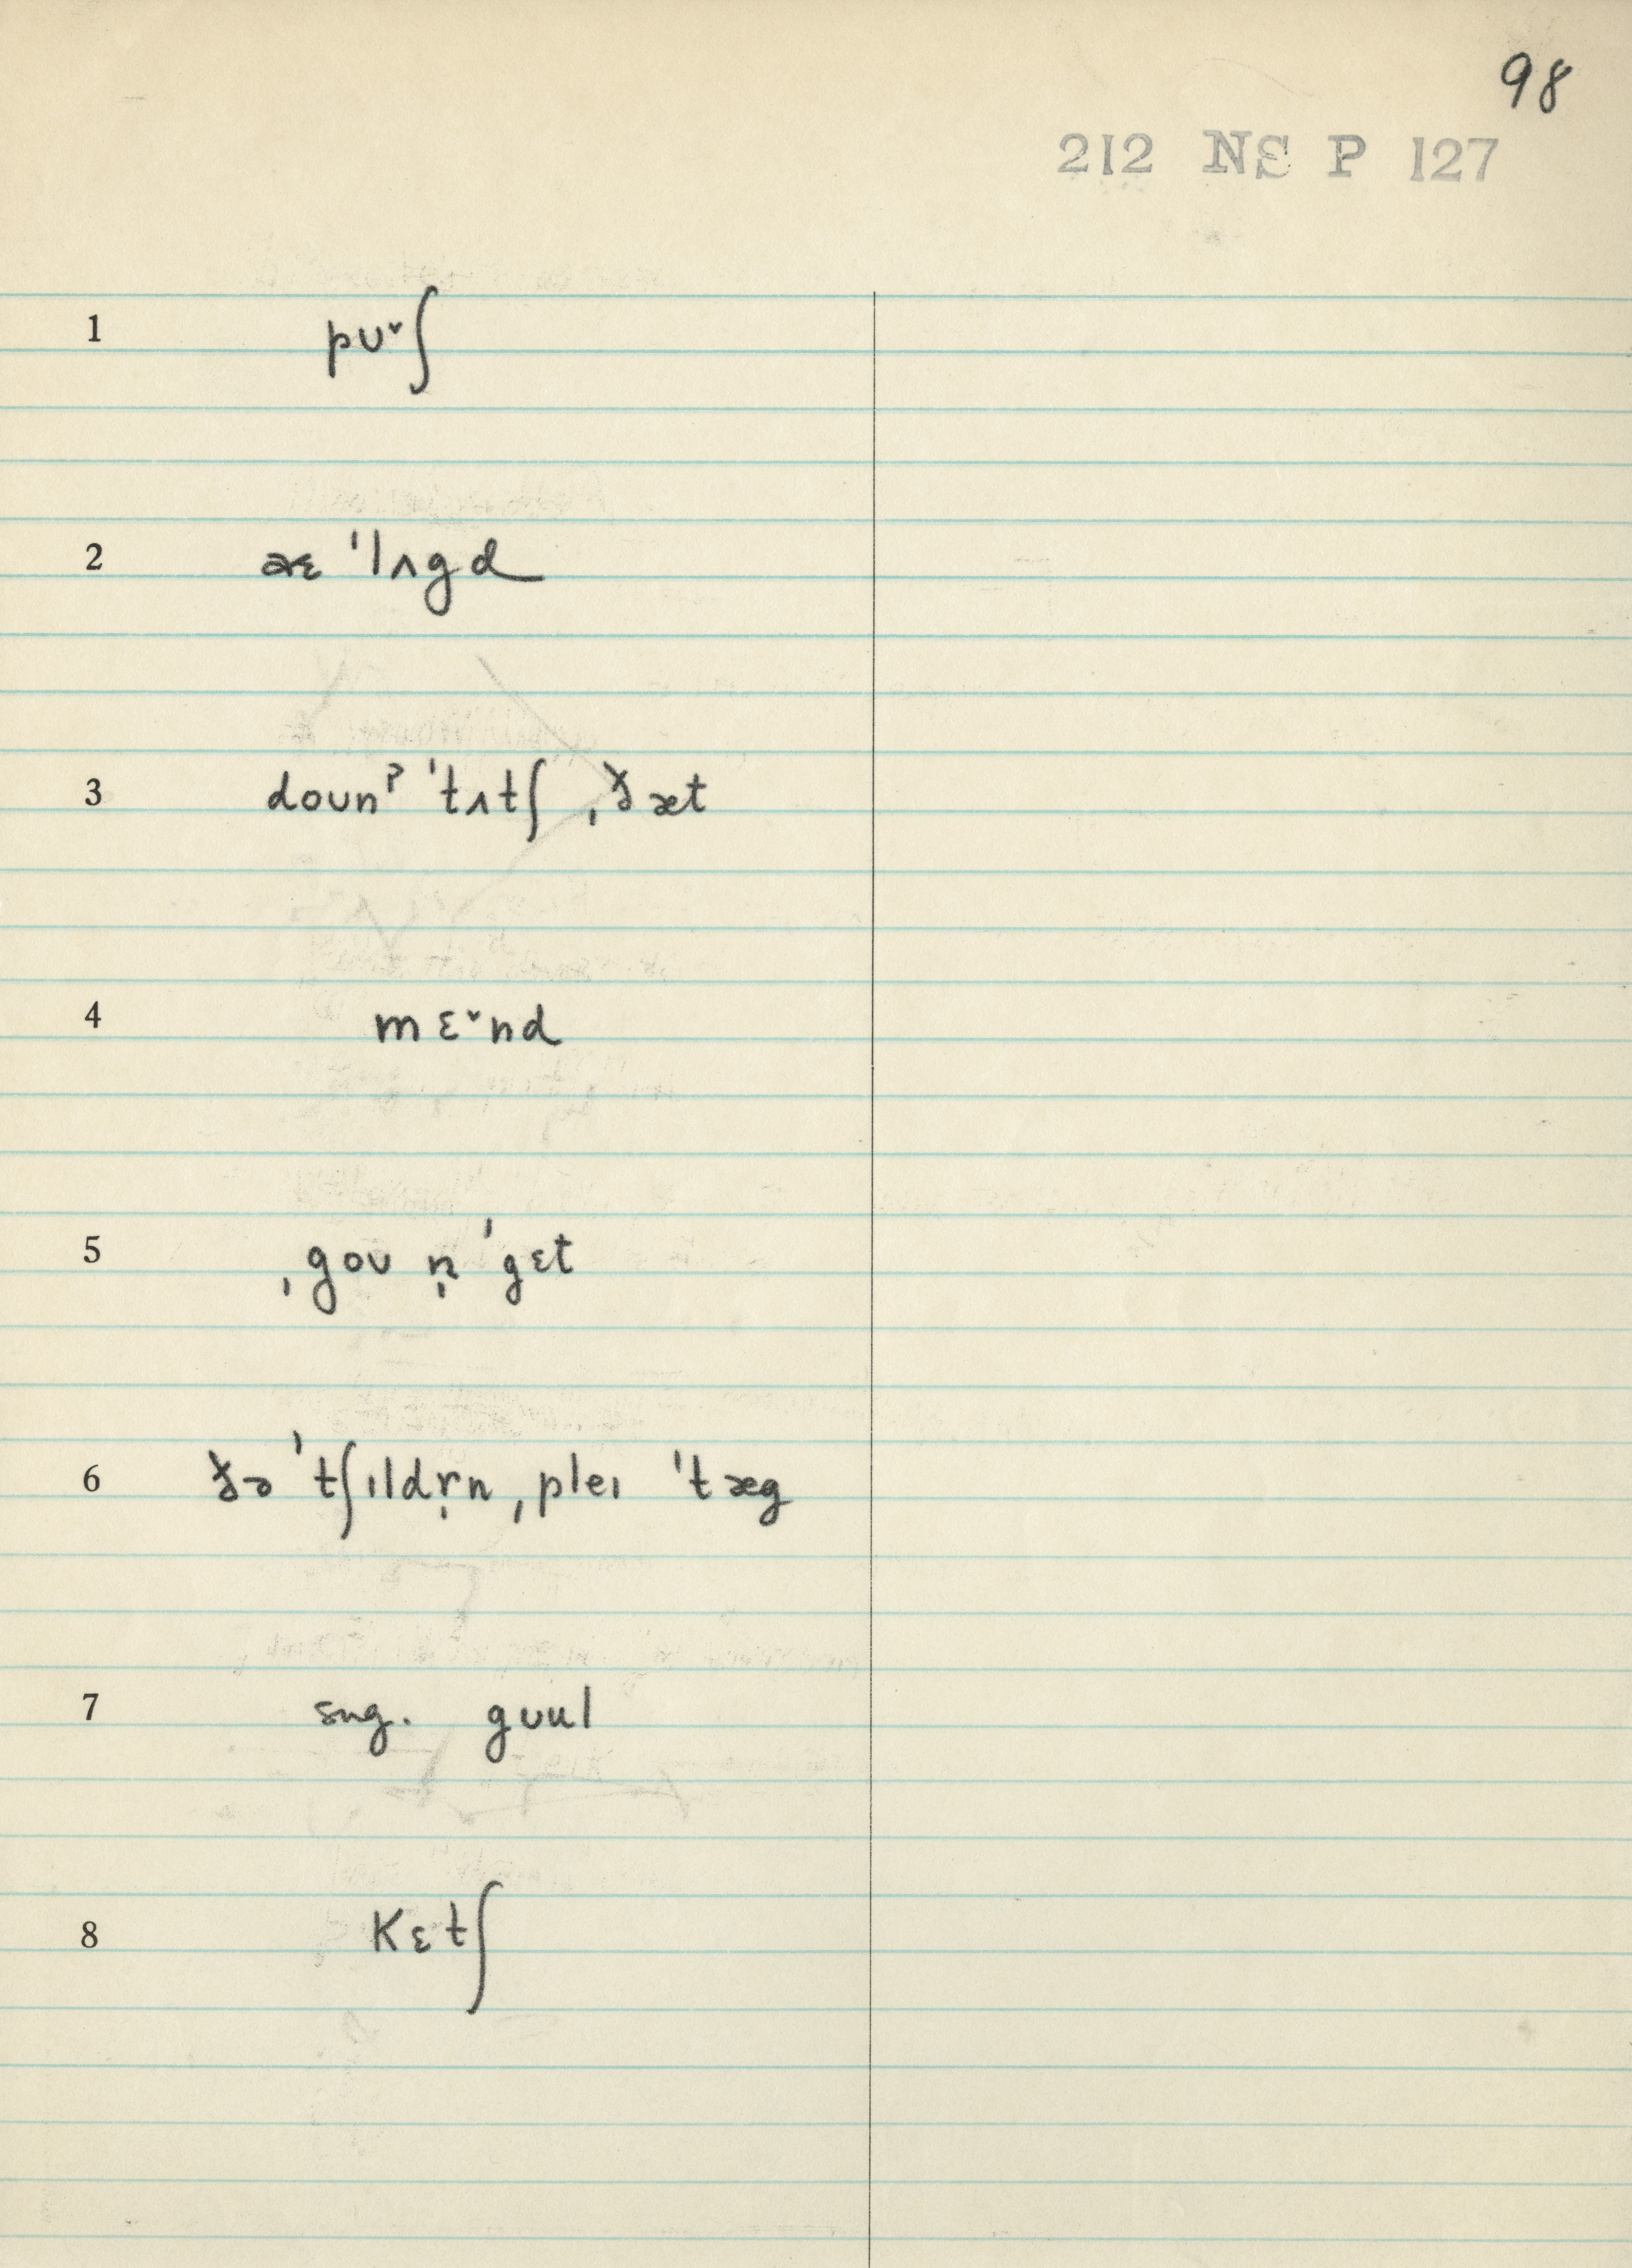 98
212 NS P 127
1 pʊ˅ʃ
2 æɛ ˈlʌgd
3 doʊnˀ ˈtʌtʃ ˌðæt
4 mɛ˅nd
5 ˌgoʊ n̩ ˈgɛt
6 ðə ˈtʃɪldr̩n ˌpleɪ ˈtæg
7 sng. gʊul
8 Kɛtʃ